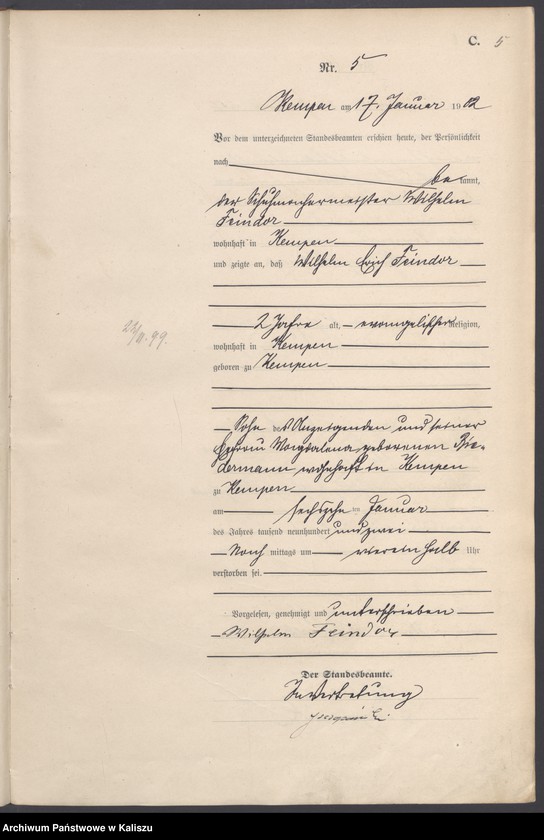 C. 5
Nr. 5
Kempen am 17. Januar 1902
Vor dem unterzeichneten Standesbeamten erschien heute, der Persönlichkeit
nach
bekannt,
der Schuhmachermeister Wilhelm
Feindor
wohnhaft in Kempen
und zeigte an, daß Wilhelm Erich Feindor
2 Jahre alt, evangelischer Religion,
wohnhaft in Kempen
geboren zu Kempen
Sohn des Anzeigenden und seiner
Ehefrau Magdalena geborenen Bie-
dermann wohnhaft in Kempen
zu Kempen
am sechszehn ten Januar
des Jahres tausend neunhundert und zwei
Nach mittags um vierein halb Uhr
verstorben sei.
Vorgelesen, genehmigt und unterschrieben
Wilhelm Feindor
Der Standesbeamte.
In Vertretung
Archiwum Państwowe w Kaliszu